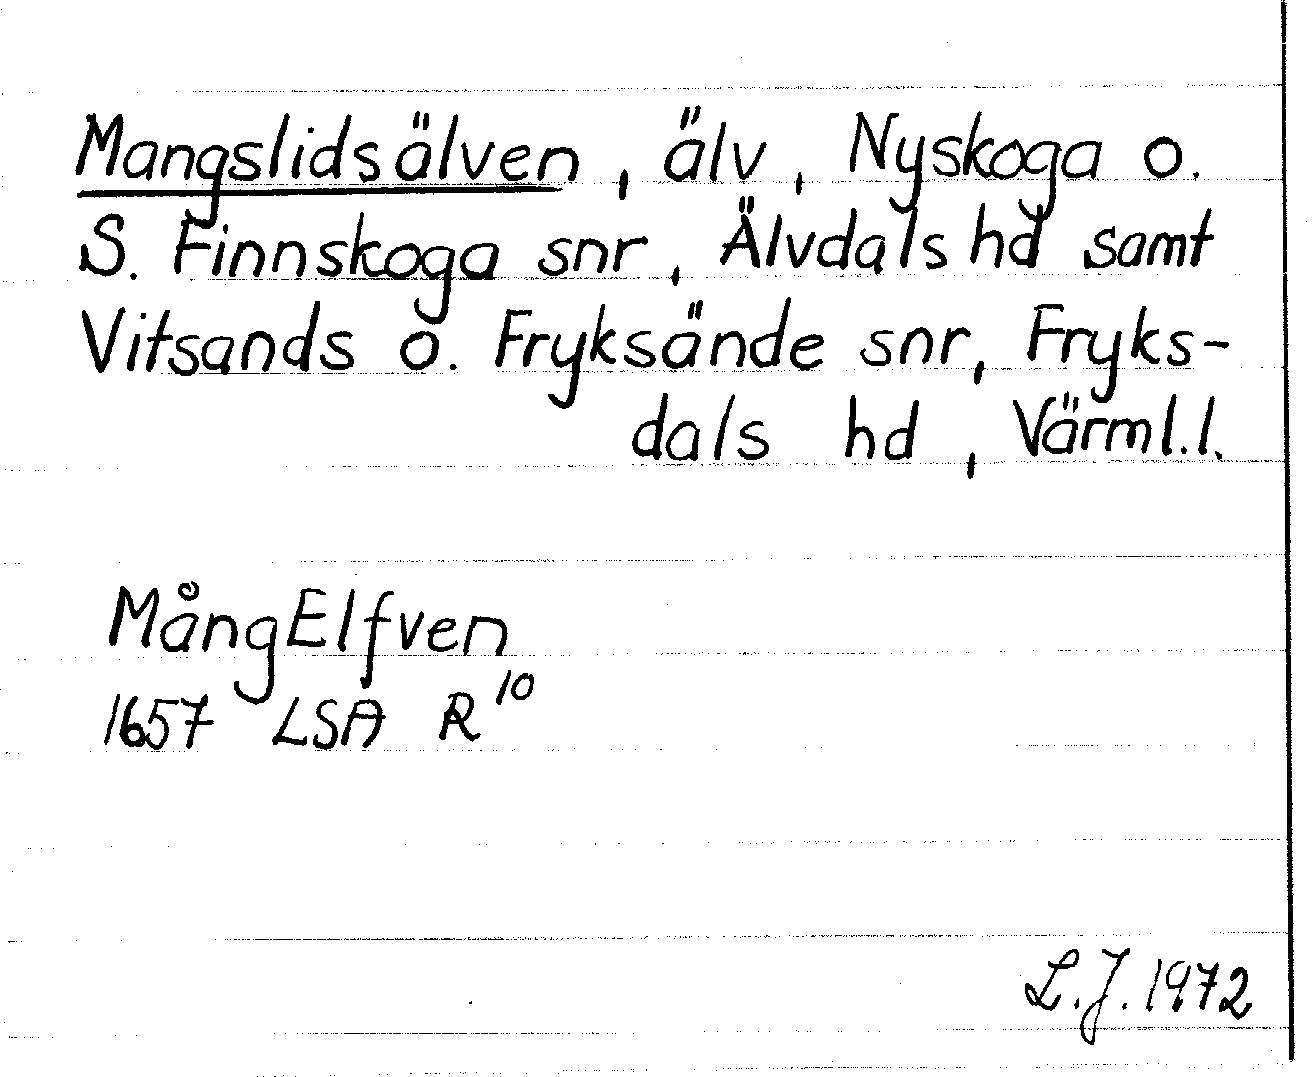 Mangslidsälven, älv, Nyskoga o.
S. Finnskoga snr, Älvdals hd samt
Vitsands o. Fryksände snr, Fryks-
dals hd, Värml.l.
MångElfven
1657 LSA R¹⁰
L.J. 1972